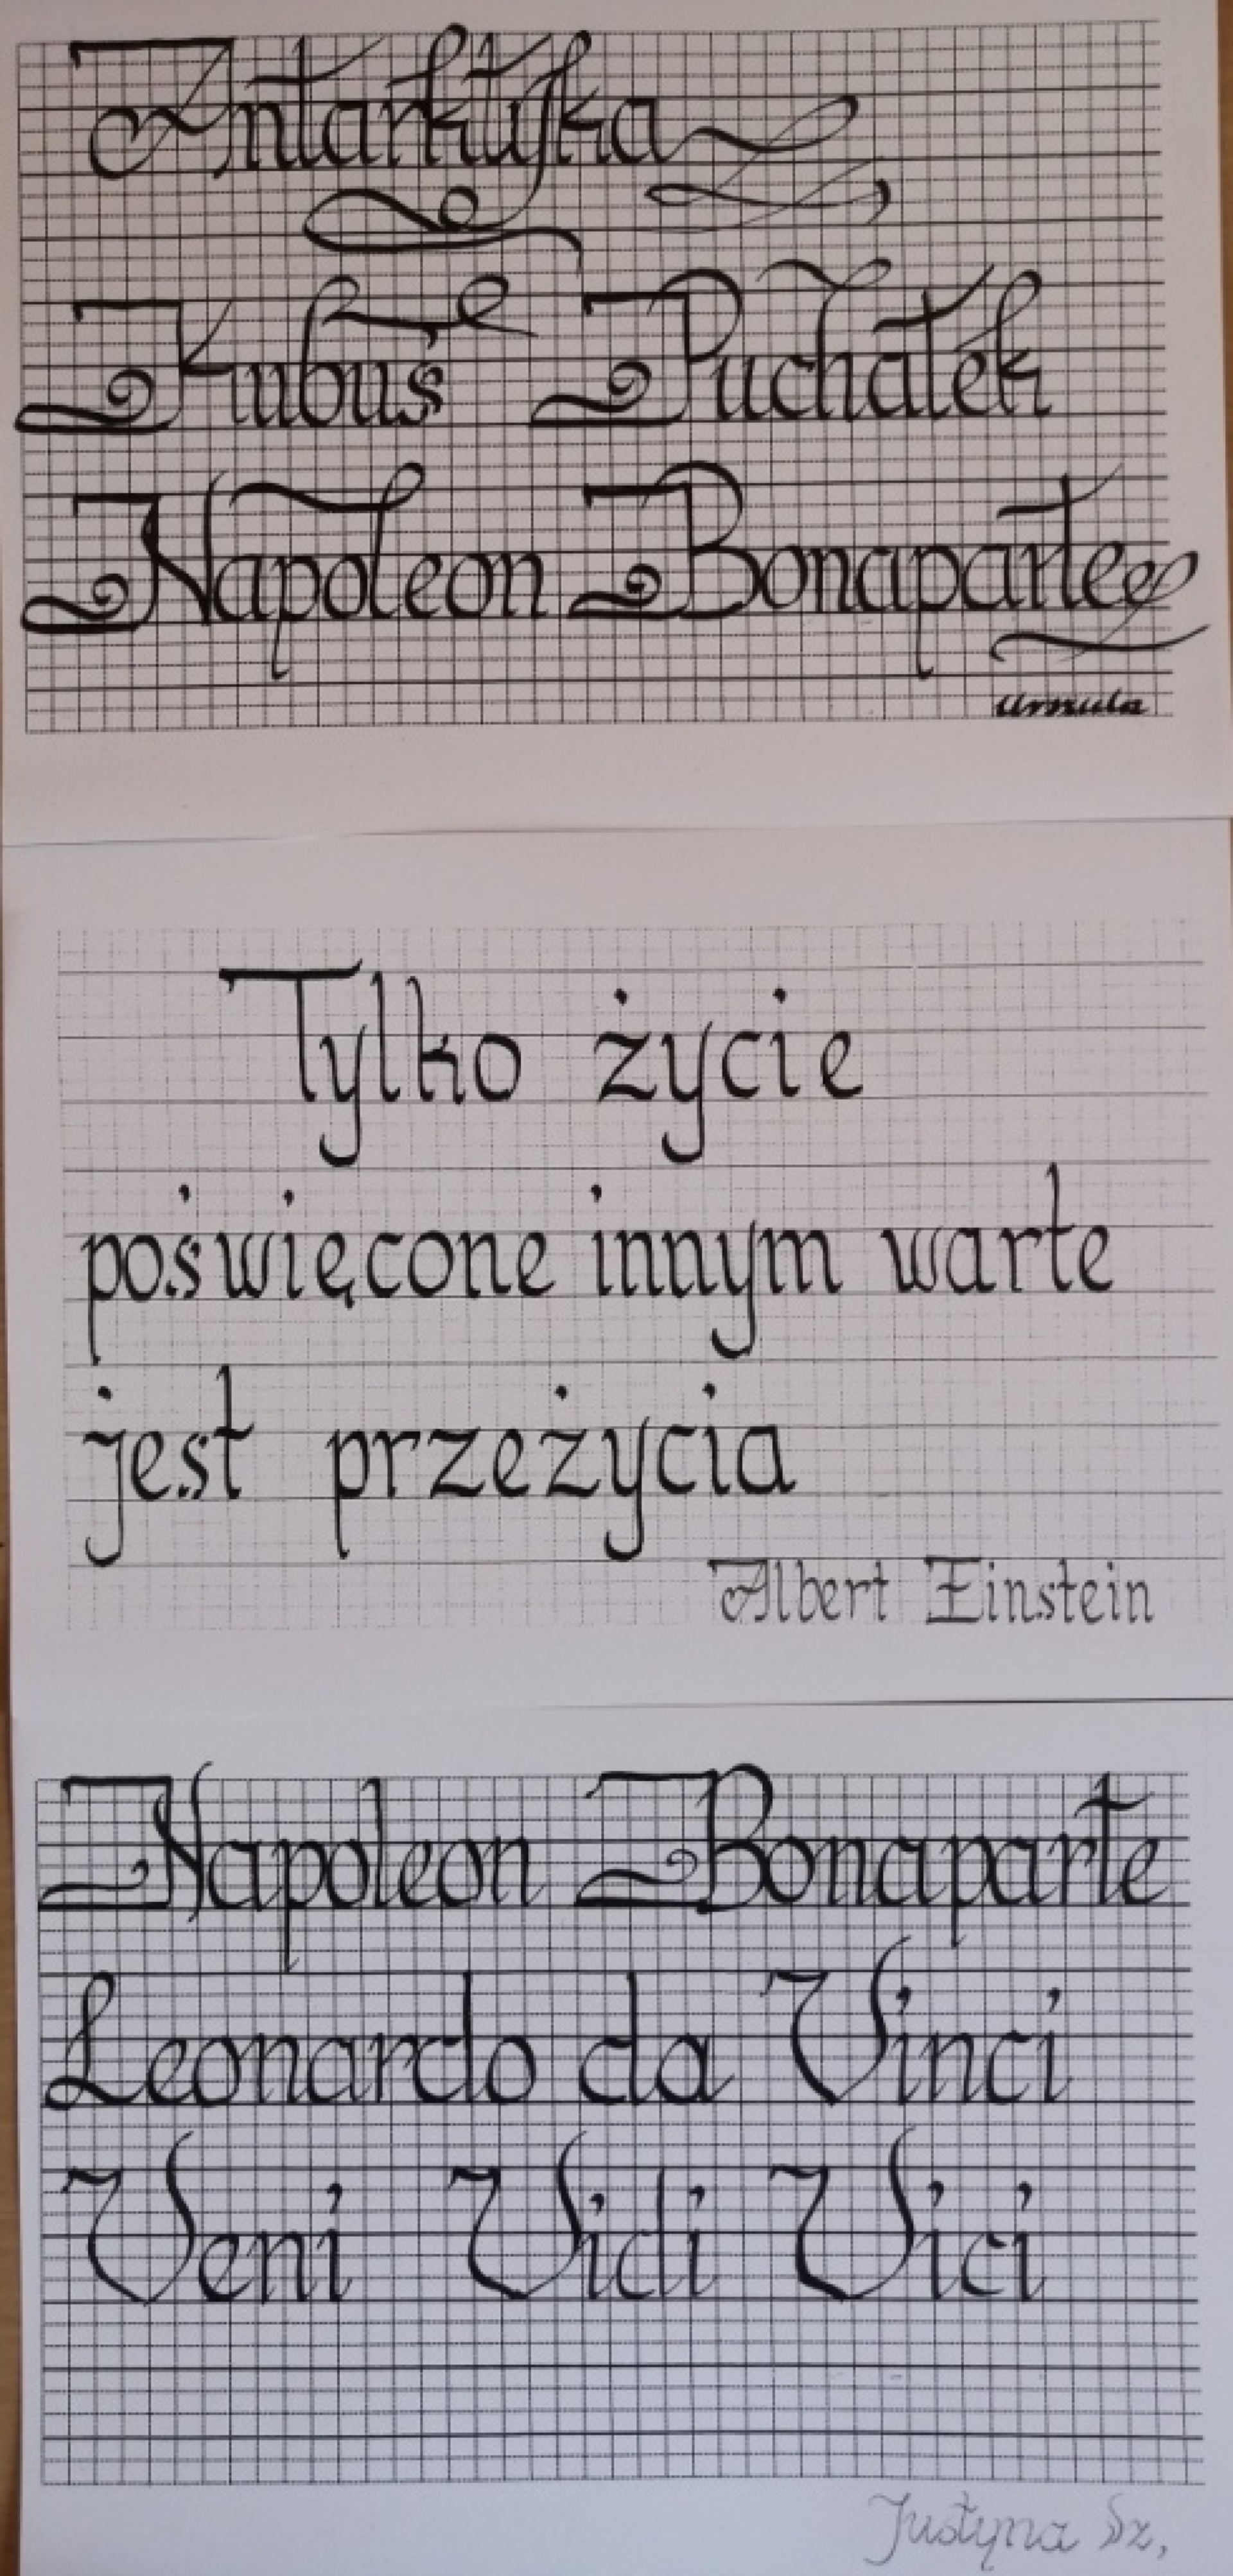 Antarktyka
Kubuś Puchatek
Napoleon Bonaparte
Urszula
Tylko życie
poświęcone innym warte
jest przeżycia
Albert Einstein
Napoleon Bonaparte
Leonardo da Vinci
Veni Vidi Vici
Justyna Sz,